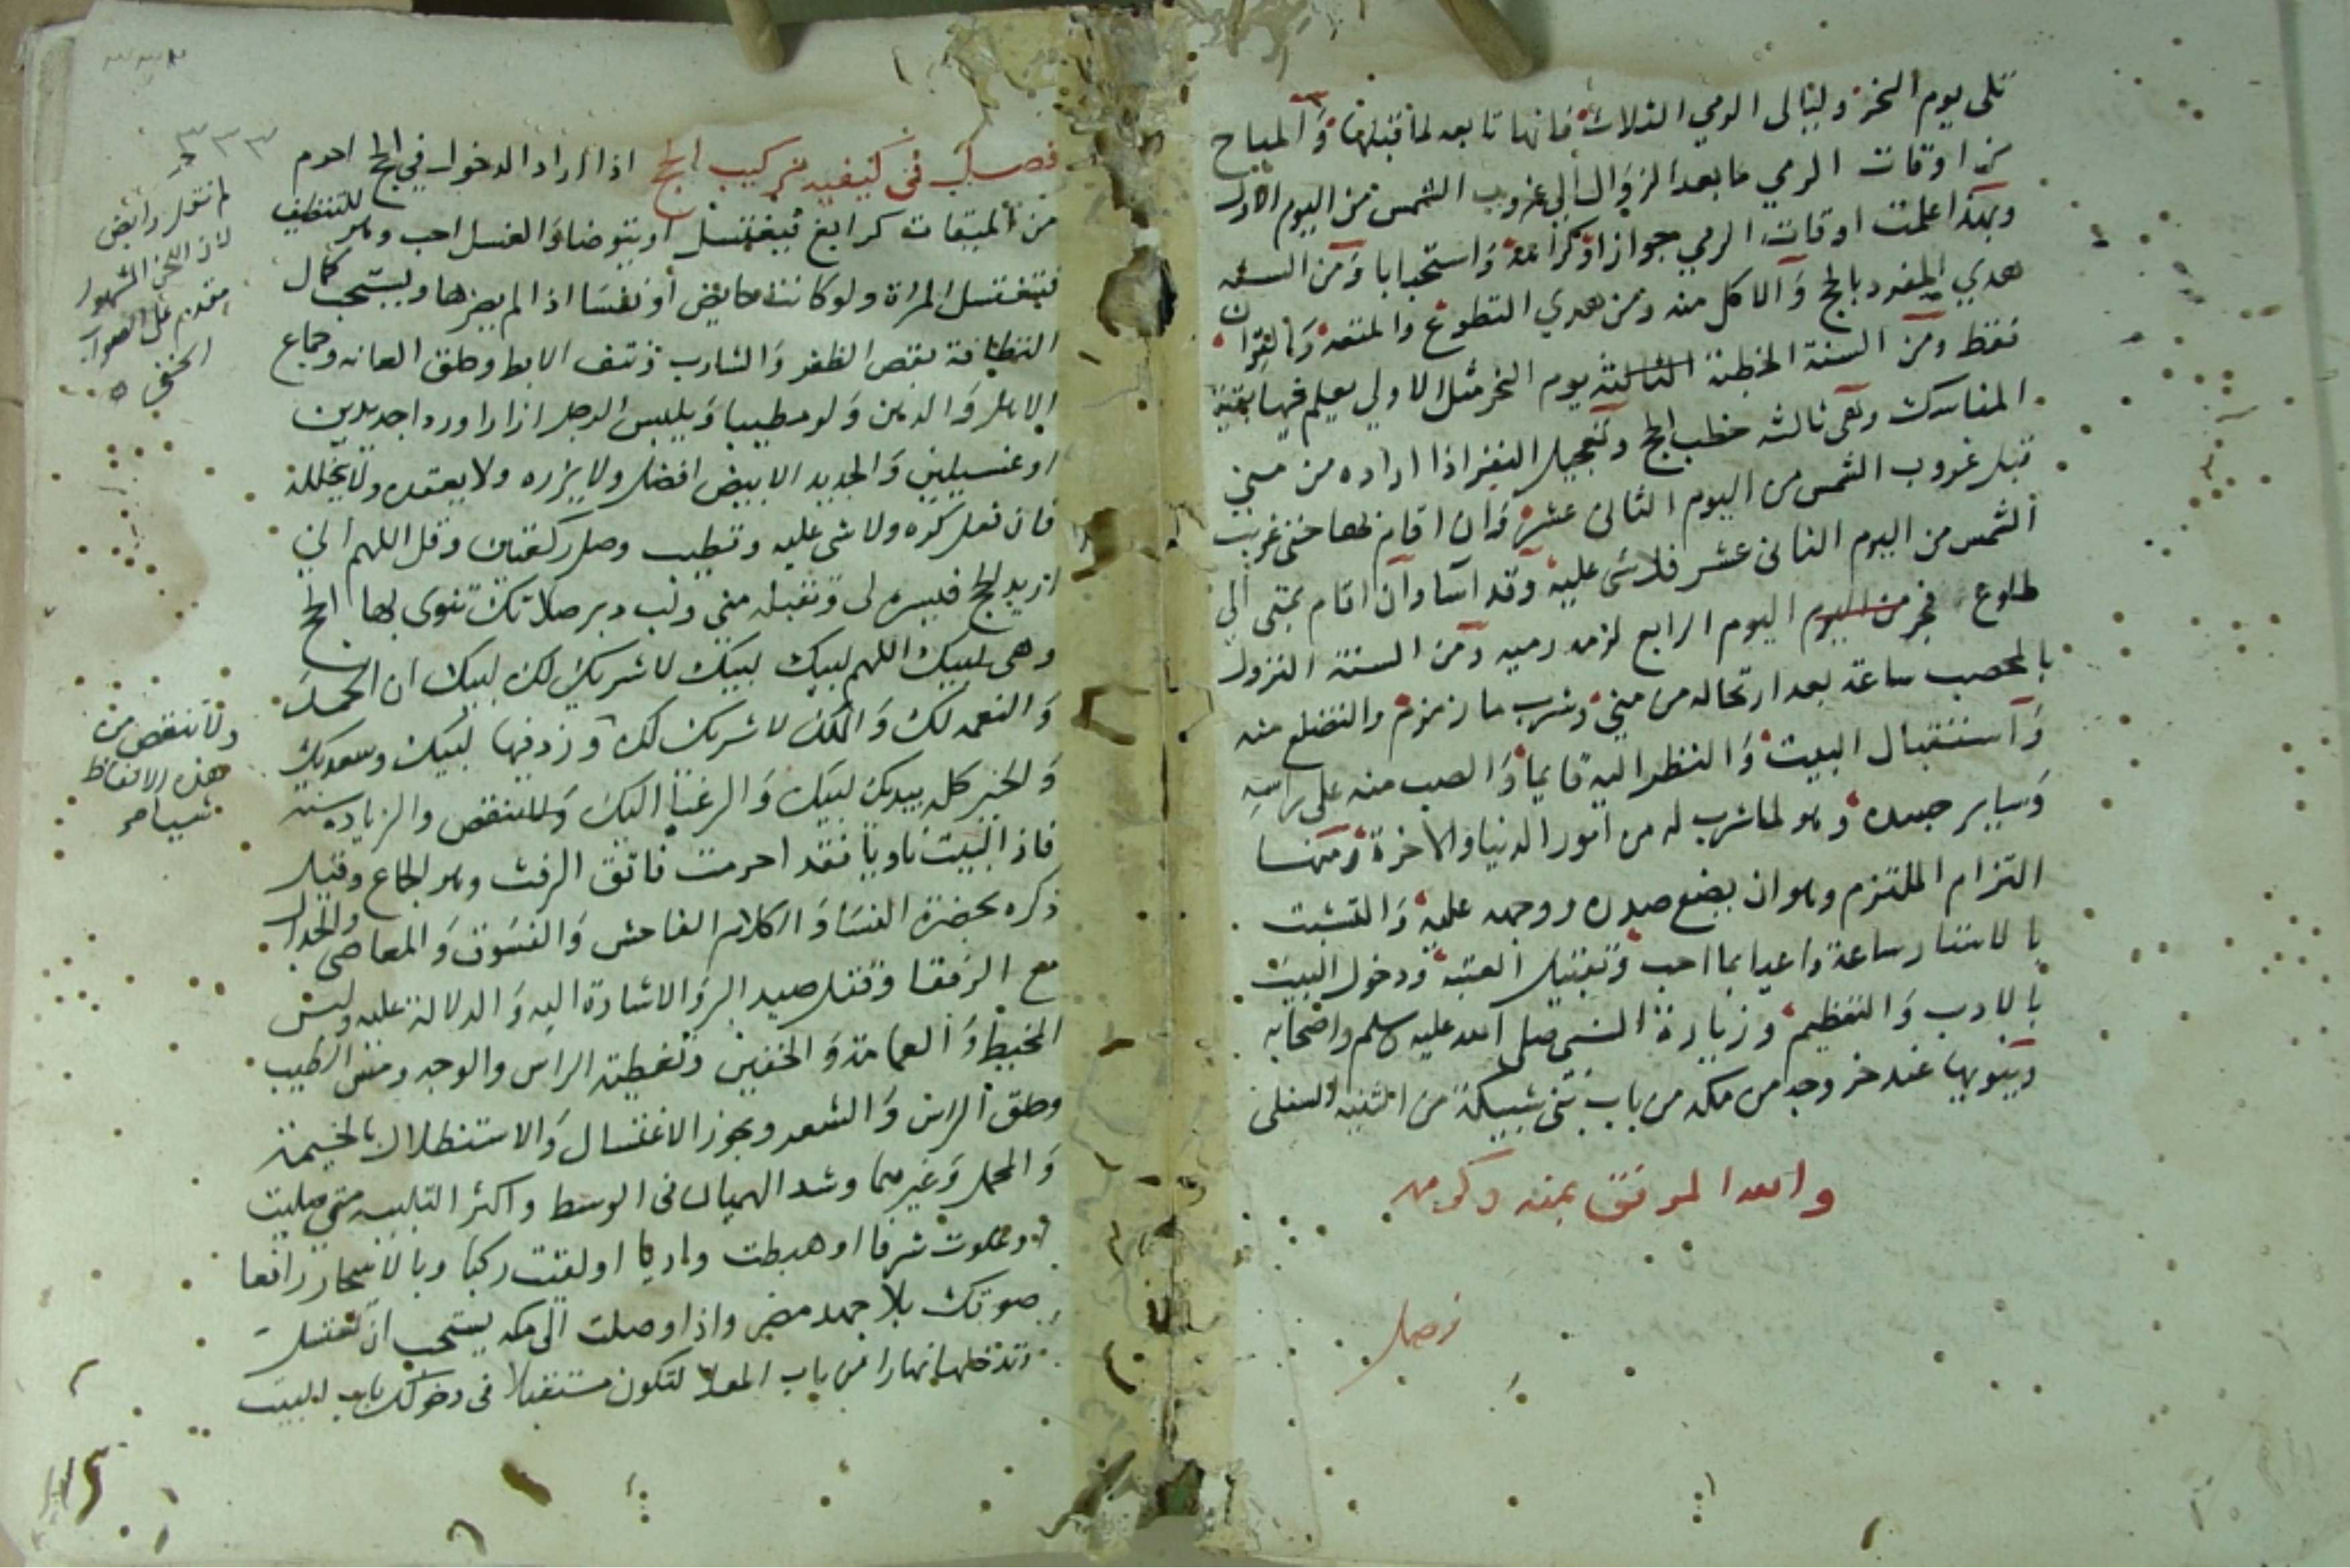 تلى يوم النحر وليالى الرمي الثلاث فانها تابعه لما قبلها والمباح
من اوقات الرمي ما بعد الزوال الى غروب الشمس من اليوم الاول
وبهذا علمت اوقات الرمي جوازا وكراهة واستحبابا ومن السنه
هدي المفرد بالحج والاكل منه ومن هدي التطوع والمتعه والقران
فقط ومن السنة الخطبة الثالثه يوم النحر مثل الاولي يعلم فيها بقية
المناسك وهى ثالثه خطب الحج وتعجيل النفر اذا اراده من منى
قبل غروب الشمس من اليوم الثانى عشر وان اقام بها حتى غربت
الشمس من اليوم الثانى عشر فلا شى عليه وقد اسا وان اقام بمنى الى
طلوع فجر من اليوم اليوم الرابع لزمه رميه ومن السنة النزول
بالمحصب ساعة بعد ارتحاله من منى وشرب ما زمزم والتضلع منه
واستقبال البيت والنظر اليه قايما والصب منه على راسه
وساير جسده وهو لما شرب له من امور الدنيا والاخرة ومنها
التزام الملتزم وهو ان يضع صدره ووجهه عليه والتشبث
بالاستار ساعة داعيا بما احب وتقبيل العتبه ودخول البيت
بالادب والتعظيم وزيارة النبي صلى الله عليه وسلم واصحابه
وينويها عند خروجه من مكه من باب بنى شبيكة من الثنيه السفلى
والله الموفق بمنه وكرمه
فصل
٣٣٣
فصل فى كيفيه تركيب الحج اذا اراد الدخول في الحج احرم
من الميقات كرابغ فيغتسل او يتوضا والغسل احب وهو للتنظيف
فتغتسل المراة ولو كانت حايض او نفسا اذا لم يضرها ويستحب كمال
النظافة بقص الظفر والشارب ونتف الابط وحلق العانه وجماع
الاهل والدهن ولو مطيبا ويلبس الرجل ازارا وردا جديدين
او غسيلين والجديد الابيض افضل ولا يزره ولا يعقده ولا يخلله
فان فعل كره ولا شى عليه وتطيب وصل ركعتين وقل اللهم انى
اريد الحج فيسره لى وتقبله مني ولب دبر صلاتك تنوى بها الحج
وهى لبيك اللهم لبيك لبيك لا شريك لك لبيك ان الحمد
والنعمه لك والملك لا شريك لك وزد فيها لبيك وسعديك
والخير كله بيديك لبيك والرغبا اليك والزياده سنه
فاذا لبيت ناويا فقد احرمت فاتق الرفث وهو الجماع وقيل
ذكره بحضرة النسا والكلام الفاحش والفسوق والمعاصى والجدال
مع الرفقا وقتل صيد البر والاشارة اليه والدلالة عليه ولبس
المخيط والعمامة والخفين وتغطية الراس والوجه ومس الطيب
وحلق الراس والشعر ويجوز الاغتسال والاستظلال بالخيمة
والمحمل وغيرهما وشد الهميان فى الوسط واكثر التلبيه متى صليت
او علوت شرفا او هبطت واديا او لقيت ركبا وبالاسحار رافعا
صوتك بلا جهد مضر واذا وصلت الى مكه يستحب ان تغتسل
وتدخلها نهارا من باب المعلا لتكون مستقبلا فى دخولك باب البيت
لان اللحن المشهور
مقدم على الصواب
الخفى
ولا تنقص من
هذه الالفاظ
شيا صح